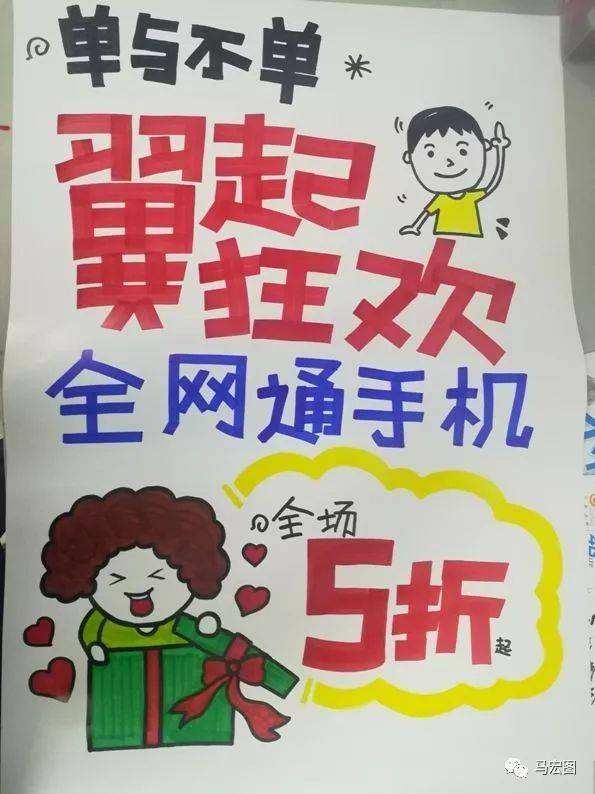 单与不单
翼起
狂欢
全网通手机
全场
5折起
马宏图